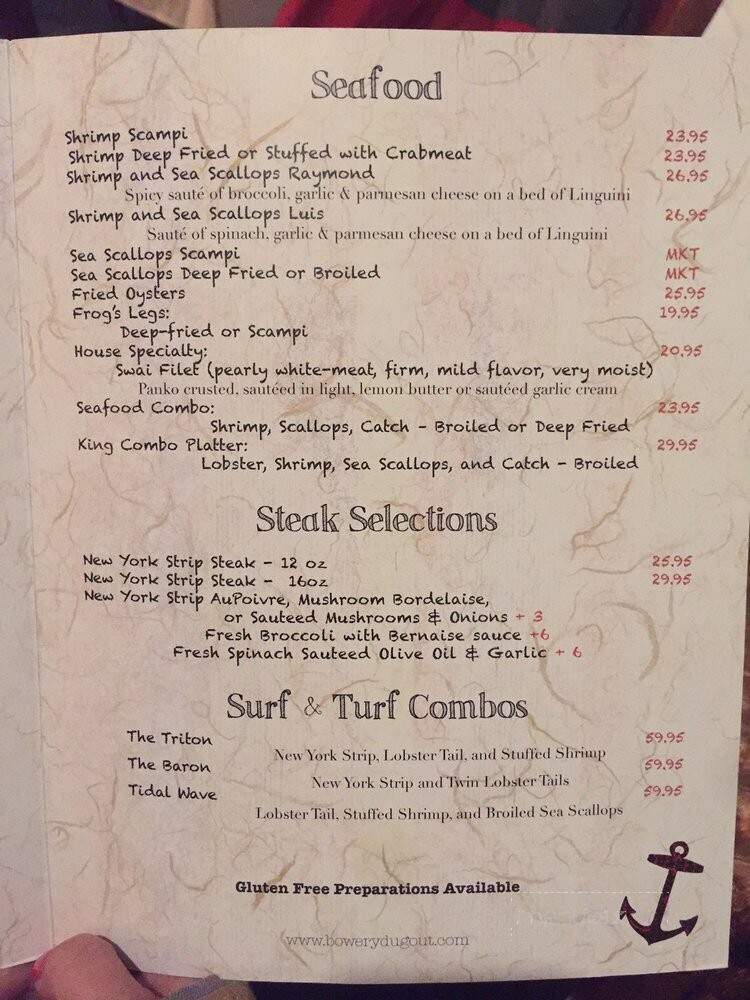 Seafood
Shrimp Scampi 23.95
Shrimp Deep Fried or Stuffed with Crabmeat 23.95
Shrimp and Sea Scallops Raymond 26.95
Spicy sauté of broccoli, garlic & parmesan cheese on a bed of Linguini
Shrimp and Sea Scallops Luis 26.95
Sauté of spinach, garlic & parmesan cheese on a bed of Linguini
Sea Scallops Scampi MKT
Sea Scallops Deep Fried or Broiled MKT
Fried Oysters 25.95
Frog's Legs: 19.95
Deep-fried or Scampi
House Specialty: 20.95
Swai Filet (pearly white-meat, firm, mild flavor, very moist)
Panko crusted, sautéed in light, lemon butter or sautéed garlic cream
Seafood Combo: 23.95
Shrimp, Scallops, Catch - Broiled or Deep Fried
King Combo Platter: 29.95
Lobster, Shrimp, Sea Scallops, and Catch - Broiled
Steak Selections
New York Strip Steak - 12 oz 25.95
New York Strip Steak - 16oz 29.95
New York Strip AuPoivre, Mushroom Bordelaise,
or Sauteed Mushrooms & Onions + 3
Fresh Broccoli with Bernaise sauce +6
Fresh Spinach Sauteed Olive Oil & Garlic + 6
Surf & Turf Combos
The Triton 59.95
New York Strip, Lobster Tail, and Stuffed Shrimp
The Baron 59.95
New York Strip and Twin Lobster Tails
Tidal Wave 59.95
Lobster Tail, Stuffed Shrimp, and Broiled Sea Scallops
Gluten Free Preparations Available
www.bowerydugout.com